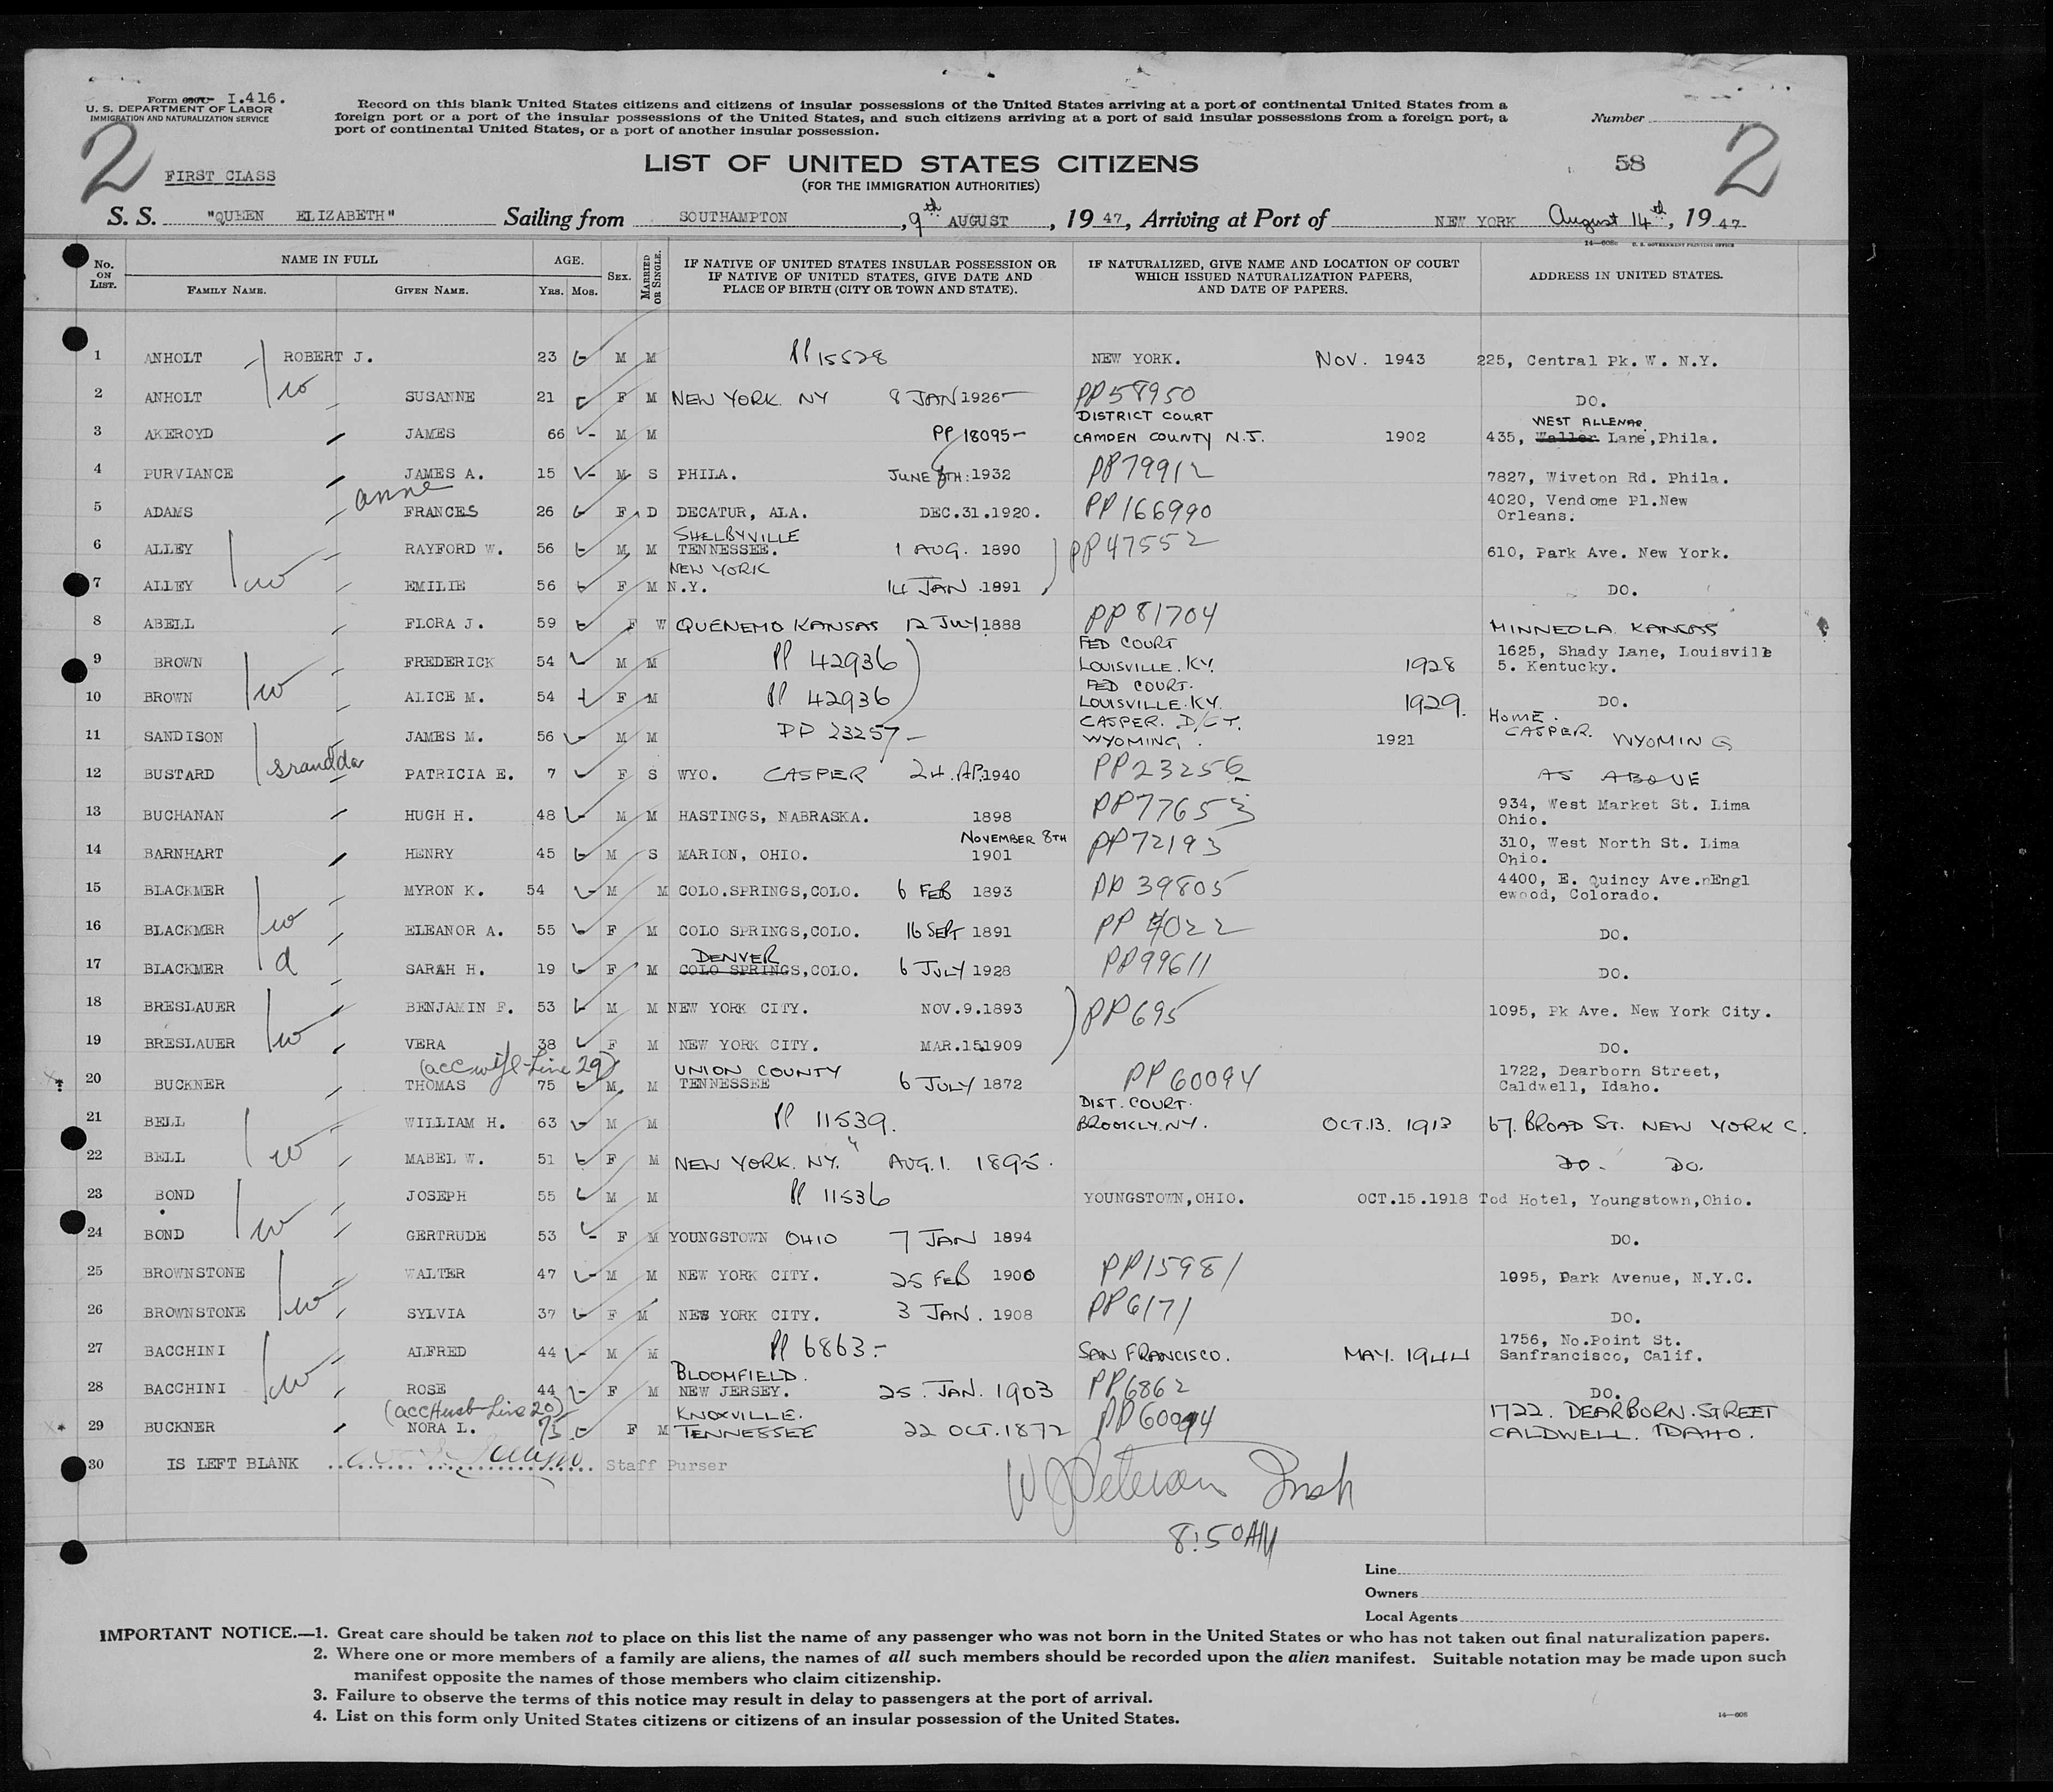 Form I.416.
U. S. DEPARTMENT OF LABOR
IMMIGRATION AND NATURALIZATION SERVICE
Record on this blank United States citizens and citizens of insular possessions of the United States arriving at a port of continental United States from a
foreign port or a port of the insular possessions of the United States, and such citizens arriving at a port of said insular possessions from a foreign port, a
port of continental United States, or a port of another insular possession.
Number
2 FIRST CLASS
LIST OF UNITED STATES CITIZENS
(FOR THE IMMIGRATION AUTHORITIES)
58 2
S. S. "QUEEN ELIZABETH" Sailing from SOUTHAMPTON, 9th AUGUST, 1947, Arriving at Port of NEW YORK August 14th, 1947
14—608c U. S. GOVERNMENT PRINTING OFFICE
No. ON LIST.
NAME IN FULL
FAMILY NAME. GIVEN NAME.
AGE.
YRS. MOS.
SEX.
MARRIED OR SINGLE.
IF NATIVE OF UNITED STATES INSULAR POSSESSION OR
IF NATIVE OF UNITED STATES, GIVE DATE AND
PLACE OF BIRTH (CITY OR TOWN AND STATE).
IF NATURALIZED, GIVE NAME AND LOCATION OF COURT
WHICH ISSUED NATURALIZATION PAPERS,
AND DATE OF PAPERS.
ADDRESS IN UNITED STATES.
1 ANHOLT ROBERT J. 23 M M PP 15528 NEW YORK. NOV. 1943 225, Central Pk. W. N.Y.
2 ANHOLT w SUSANNE 21 F M NEW YORK NY 8 JAN 1926 PP58950 DO.
DISTRICT COURT WEST ALLENAR.
3 AKEROYD JAMES 66 M M PP 18095- CAMDEN COUNTY N.J. 1902 435, Waller Lane, Phila.
4 PURVIANCE JAMES A. 15 M S PHILA. JUNE 8TH: 1932 PP79912 7827, Wiveton Rd. Phila.
anne
5 ADAMS FRANCES 26 F D DECATUR, ALA. DEC.31.1920. PP166990 4020, Vendome Pl.New
Orleans.
SHELBYVILLE
6 ALLEY RAYFORD W. 56 M M TENNESSEE. 1 AUG. 1890 PP47552 610, Park Ave. New York.
NEW YORK
7 ALLEY w EMILIE 56 F M N.Y. 14 JAN .1891 DO.
8 ABELL FLORA J. 59 F W QUENEMO KANSAS 12 JULY 1888 PP 81704 MINNEOLA KANSAS
FED COURT
9 BROWN FREDERICK 54 M M PP 42936 LOUISVILLE. KY. 1928 1625, Shady Lane, Louisville
5. Kentucky.
FED COURT.
10 BROWN w ALICE M. 54 F M PP 42936 LOUISVILLE. KY. 1929. DO.
CASPER. D/CT. HOME.
11 SANDISON JAMES M. 56 M M PP 23257- WYOMING. 1921 CASPER. WYOMING
12 BUSTARD grandda PATRICIA E. 7 F S WYO. CASPER 24.AP.1940 PP23256 AS ABOVE
13 BUCHANAN HUGH H. 48 M M HASTINGS, NABRASKA. 1898 PP77653 934, West Market St. Lima
Ohio.
NOVEMBER 8TH
14 BARNHART HENRY 45 M S MARION, OHIO. 1901 PP72193 310, West North St. Lima
Ohio.
15 BLACKMER MYRON K. 54 M M COLO.SPRINGS,COLO. 6 FEB 1893 PP 39805 4400, E. Quincy Ave.nEngl
ewood, Colorado.
16 BLACKMER w ELEANOR A. 55 F M COLO SPRINGS,COLO. 16 SEPT 1891 PP 4022 DO.
DENVER
17 BLACKMER d SARAH H. 19 F M COLO SPRINGS,COLO. 6 JULY 1928 PP99611 DO.
18 BRESLAUER BENJAMIN F. 53 M M NEW YORK CITY. NOV.9.1893 PP695 1095, Pk Ave. New York City.
19 BRESLAUER w VERA 38 F M NEW YORK CITY. MAR.15.1909 DO.
(acc wife Line 29) UNION COUNTY
20 BUCKNER THOMAS 75 M M TENNESSEE 6 JULY 1872 PP60094 1722, Dearborn Street,
Caldwell, Idaho.
DIST. COURT.
21 BELL WILLIAM H. 63 M M PP 11539. BROOKLY.NY. OCT.13. 1913 67. BROAD ST. NEW YORK C.
22 BELL w MABEL W. 51 F M NEW YORK. NY. " AUG.1. 1895. DO. DO.
23 BOND JOSEPH 55 M M PP 11536 YOUNGSTOWN,OHIO. OCT.15.1918 Tod Hotel, Youngstown,Ohio.
24 BOND w GERTRUDE 53 F M YOUNGSTOWN OHIO 7 JAN 1894 DO.
25 BROWNSTONE WALTER 47 M M NEW YORK CITY. 25 FEB 1900 PP15981 1095, Park Avenue, N.Y.C.
26 BROWNSTONE w SYLVIA 37 F M NEW YORK CITY. 3 JAN. 1908 PP6171 DO.
27 BACCHINI ALFRED 44 M M PP 6863- SAN FRANCISCO. MAY. 1944 1756, No.Point St.
Sanfrancisco, Calif.
BLOOMFIELD.
28 BACCHINI w ROSE 44 F M NEW JERSEY. 25. JAN. 1903 PP6862 DO.
(acc Husb Line 20) KNOXVILLE. 1722. DEARBORN. STREET
29 BUCKNER NORA L. 75 F M TENNESSEE 22 OCT. 1872 PP60094 CALDWELL. IDAHO.
30 IS LEFT BLANK Staff Purser
8:50AM
Line
Owners
Local Agents
IMPORTANT NOTICE.—1. Great care should be taken not to place on this list the name of any passenger who was not born in the United States or who has not taken out final naturalization papers.
2. Where one or more members of a family are aliens, the names of all such members should be recorded upon the alien manifest. Suitable notation may be made upon such
manifest opposite the names of those members who claim citizenship.
3. Failure to observe the terms of this notice may result in delay to passengers at the port of arrival.
4. List on this form only United States citizens or citizens of an insular possession of the United States.
14—608